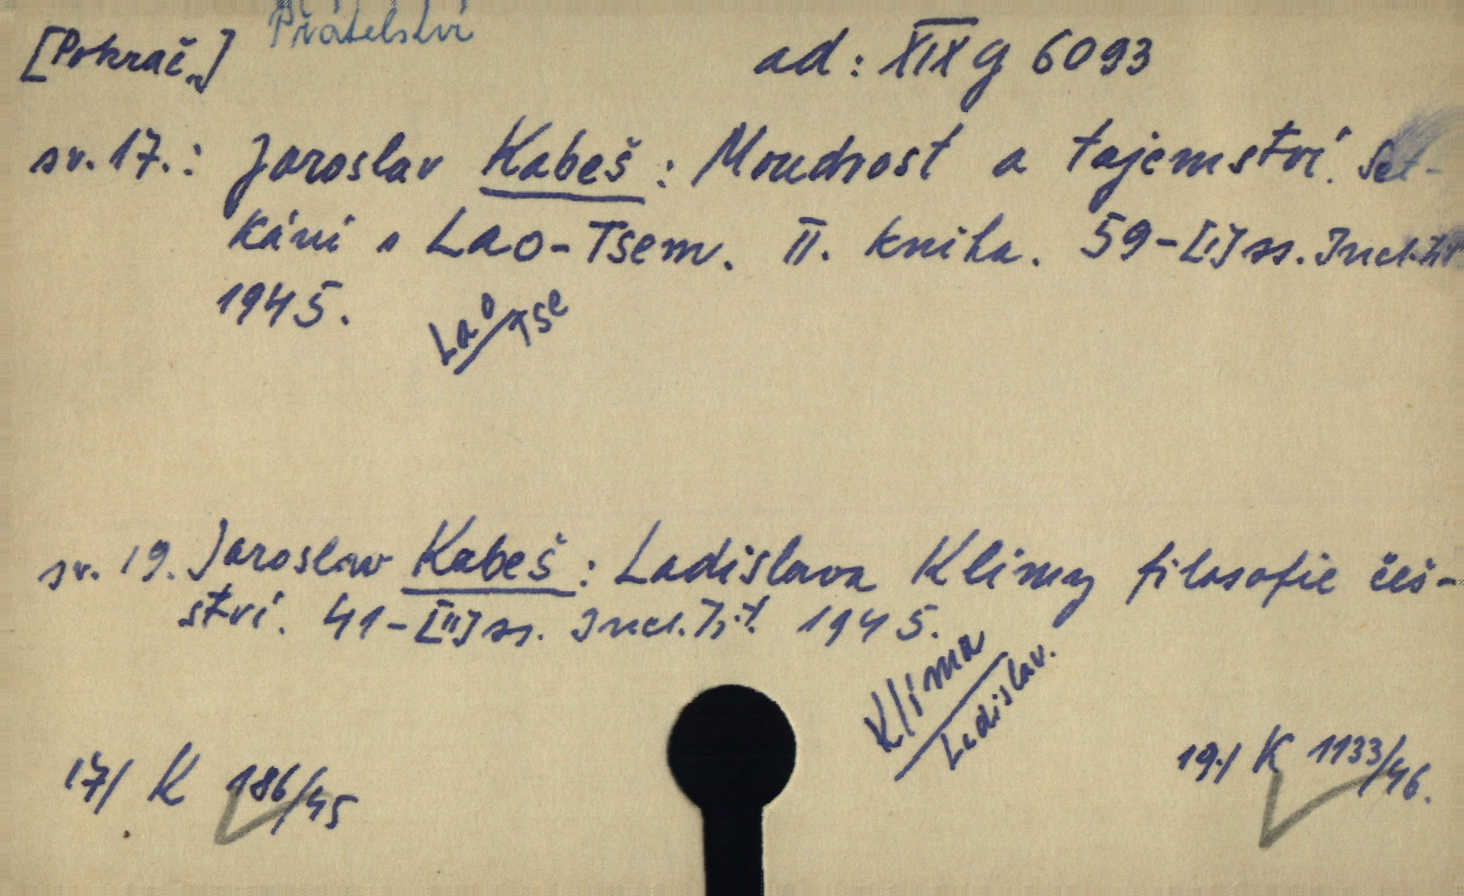 Přátelství
[Pokrač.]
ad: XIX g 6093
sv. 17.: Jaroslav Kabeš: Moudrost a tajemství. Set-
kání s Lao-Tsem. II. kniha. 59-[I] ss. Incl. Žit.
1945.
Lao
Tse
sv. 19. Jaroslav Kabeš: Ladislava Klímy filosofie češ-
ství. 41-[II] ss. Incl. Žit. 1945.
Klíma
Ladislav.
17/ K 186/45
19./ K 1133/46.